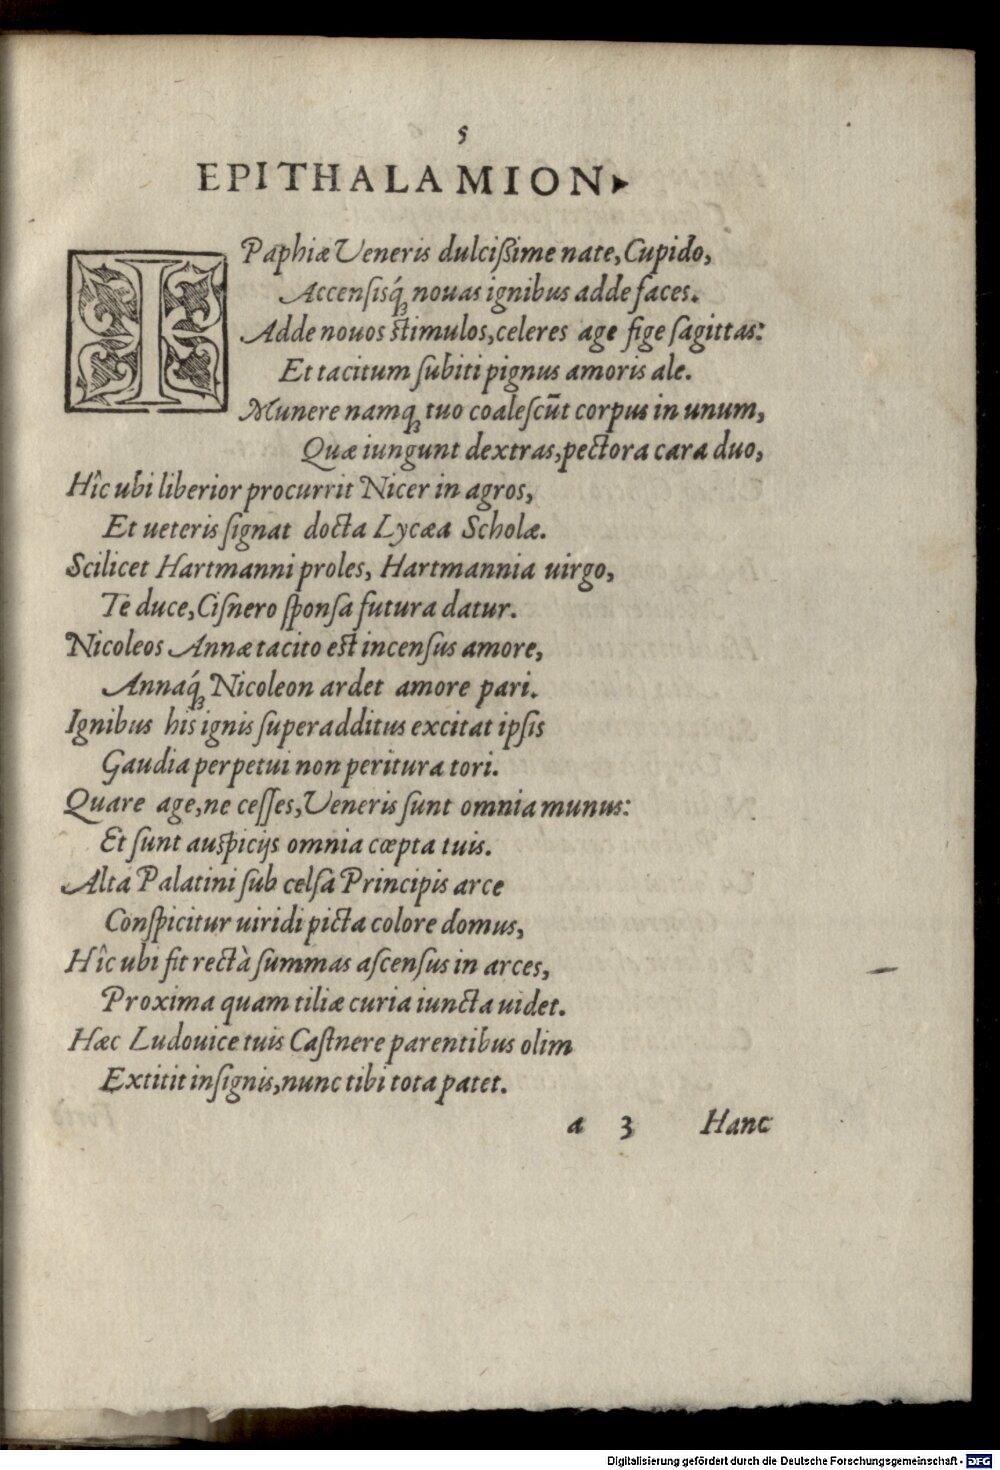 5
EPITHALAMION
I Paphiæ Veneris dulcißime nate, Cupido,
Accensisq́ꝫ nouas ignibus adde faces.
Adde nouos stimulos, celeres age fige sagittas:
Et tacitum subiti pignus amoris ale.
Munere namqꝫ tuo coalescũt corpus in unum,
Quæ iungunt dextras, pectora cara duo,
Hîc ubi liberior procurrit Nicer in agros,
Et ueteris signat docta Lycæa Scholæ.
Scilicet Hartmanni proles, Hartmannia uirgo,
Te duce, Cisnero sponsa futura datur.
Nicoleos Annæ tacito est incensus amore,
Annaq́ꝫ Nicoleon ardet amore pari.
Ignibus his ignis superadditus excitat ipsis
Gaudia perpetui non peritura tori.
Quare age, ne cesses, Veneris sunt omnia munus:
Et sunt auspicijs omnia cœpta tuis.
Alta Palatini sub celsa Principis arce
Conspicitur uiridi picta colore domus,
Hîc ubi fit rectà summas ascensus in arces,
Proxima quam tiliæ curia iuncta uidet.
Hæc Ludouice tuis Castnere parentibus olim
Extitit insignis, nunc tibi tota patet.
a 3 Hanc
Digitalisierung gefördert durch die Deutsche Forschungsgemeinschaft - DFG